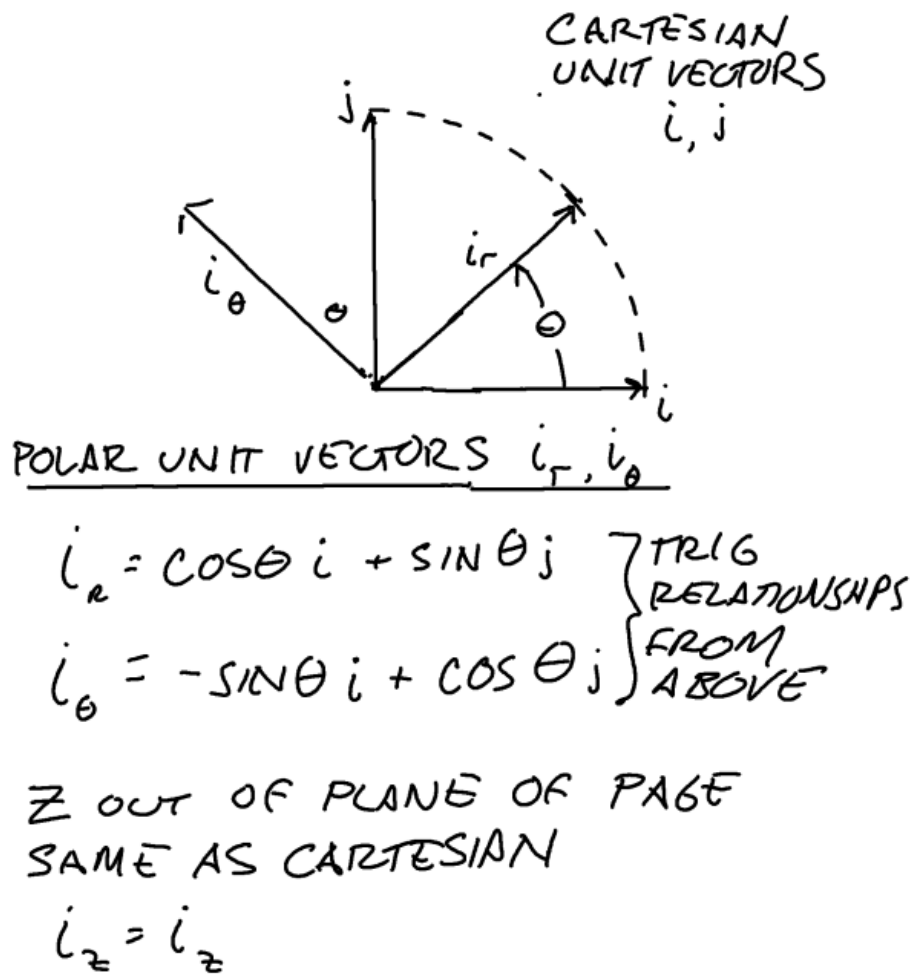 CARTESIAN
UNIT VECTORS
i, j
j
i_r
i_θ
θ
θ
i
POLAR UNIT VECTORS i_r, i_θ
i_R = COSθ i + SIN θ j
i_θ = -SINθ i + COS θ j
TRIG
RELATIONSHIPS
FROM
ABOVE
Z OUT OF PLANE OF PAGE
SAME AS CARTESIAN
i_z = i_z